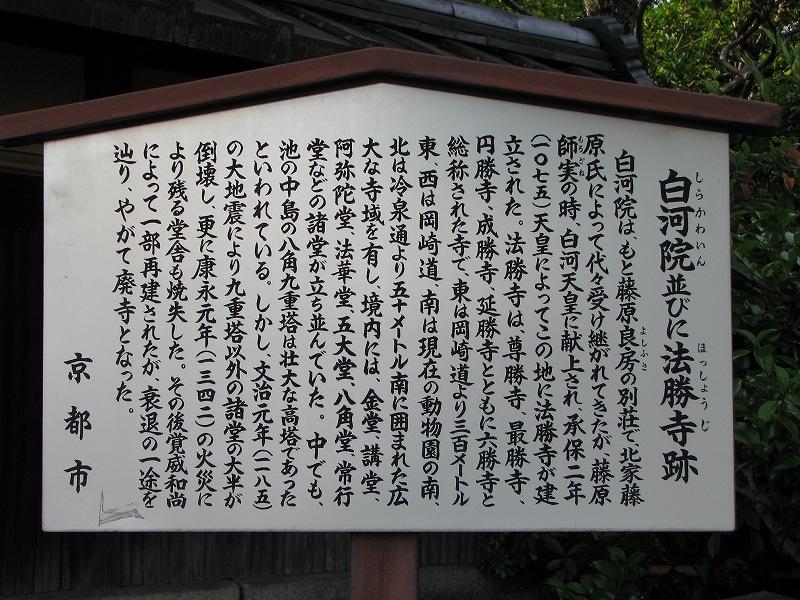 白河院並びに法勝寺跡
しらかわいん
ほっしょうじ
白河院は、もと藤原良房の別荘で、北家藤
よしふさ
原氏によって代々受け継がれてきたが、藤原
師実の時、白河天皇に献上され、承保二年
もろざね
(一〇七五)天皇によってこの地に法勝寺が建
立された。法勝寺は、尊勝寺、最勝寺、
円勝寺、成勝寺、延勝寺とともに六勝寺と
総称された寺で、東は岡崎道より三百メートル
東、西は岡崎道、南は現在の動物園の南、
北は冷泉通より五十メートル南に囲まれた広
大な寺域を有し、境内には、金堂、講堂、
阿弥陀堂、法華堂、五大堂、八角堂、常行
堂などの諸堂が立ち並んでいた。中でも、
池の中島の八角九重塔は壮大な高塔であった
といわれている。しかし、文治元年(一一八五)
の大地震により九重塔以外の諸堂の大半が
倒壊し、更に康永元年(一三四二)の火災に
より残る堂舎も焼失した。その後覚威和尚
によって一部再建されたが、衰退の一途を
辿り、やがて廃寺となった。
京都市